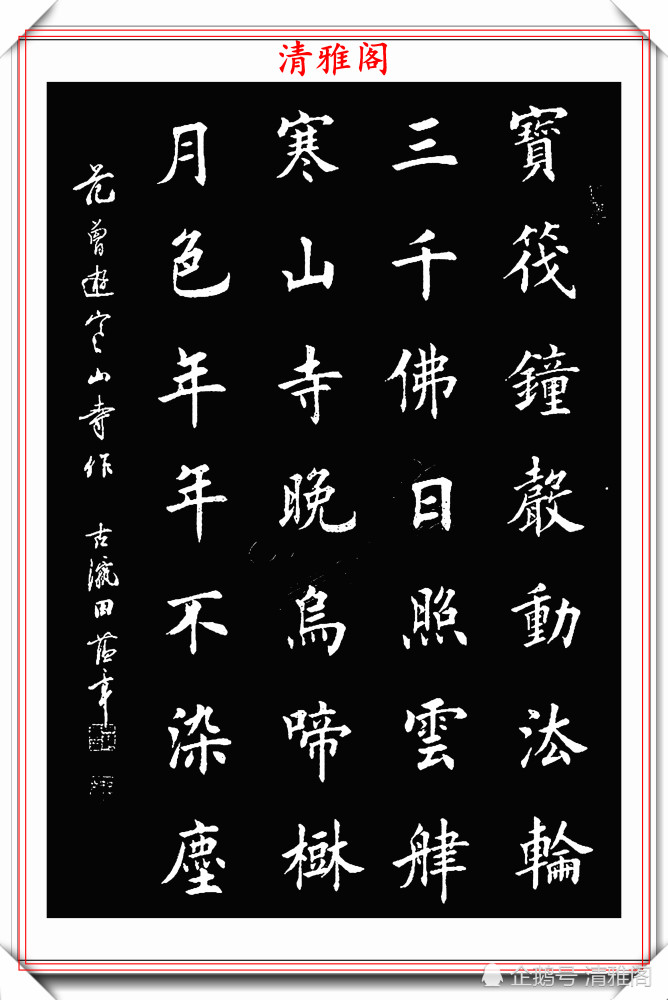 清雅阁
寶筏鐘聲動法輪
三千佛日照雲津
寒山寺晚烏啼樹
月色年年不染塵
范曾遊寒山寺作 古瀛田蘊章
企鹅号 清雅阁